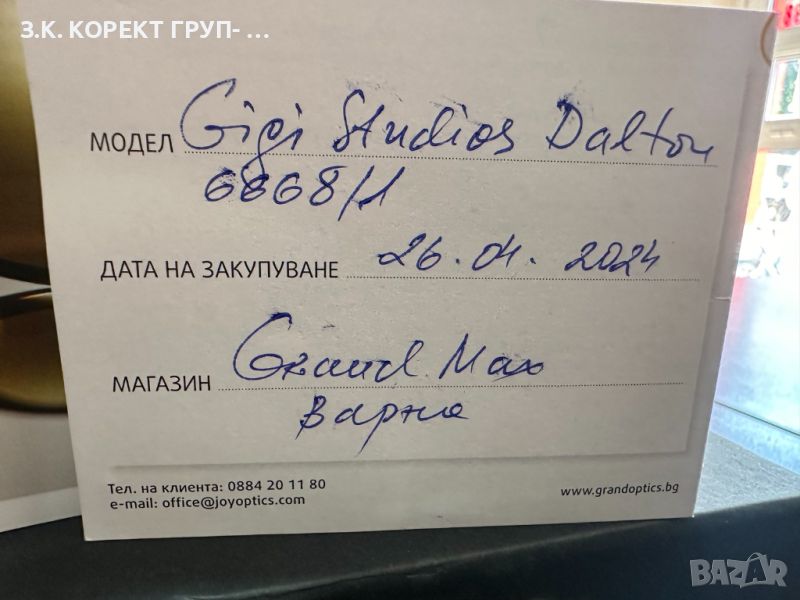 З.К. КОРЕКТ ГРУП- ...
МОДЕЛ Gigi Studios Dalton
6868/1
ДАТА НА ЗАКУПУВАНЕ 26.04.2024
МАГАЗИН Grand Max
Варна
Тел. на клиента: 0884 20 11 80
e-mail: office@joyoptics.com
www.grandoptics.bg
BAZAR